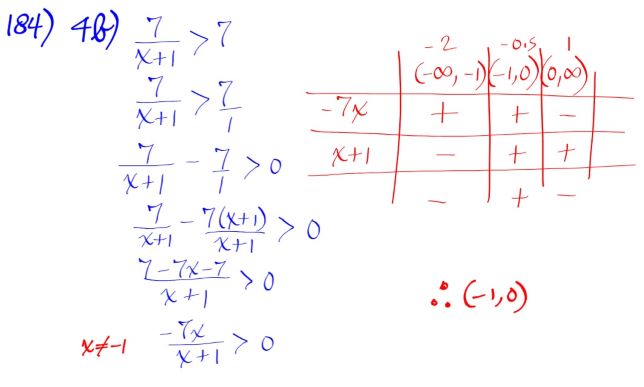 184) 4b) 7/(x+1) > 7
7/(x+1) > 7/1
7/(x+1) - 7/1 > 0
7/(x+1) - 7(x+1)/(x+1) > 0
(7-7x-7)/(x+1) > 0
x≠-1 -7x/(x+1) > 0
-2 -0.5 1
(-∞,-1) (-1,0) (0,∞)
-7x + + -
x+1 - + +
- + -
∴ (-1,0)